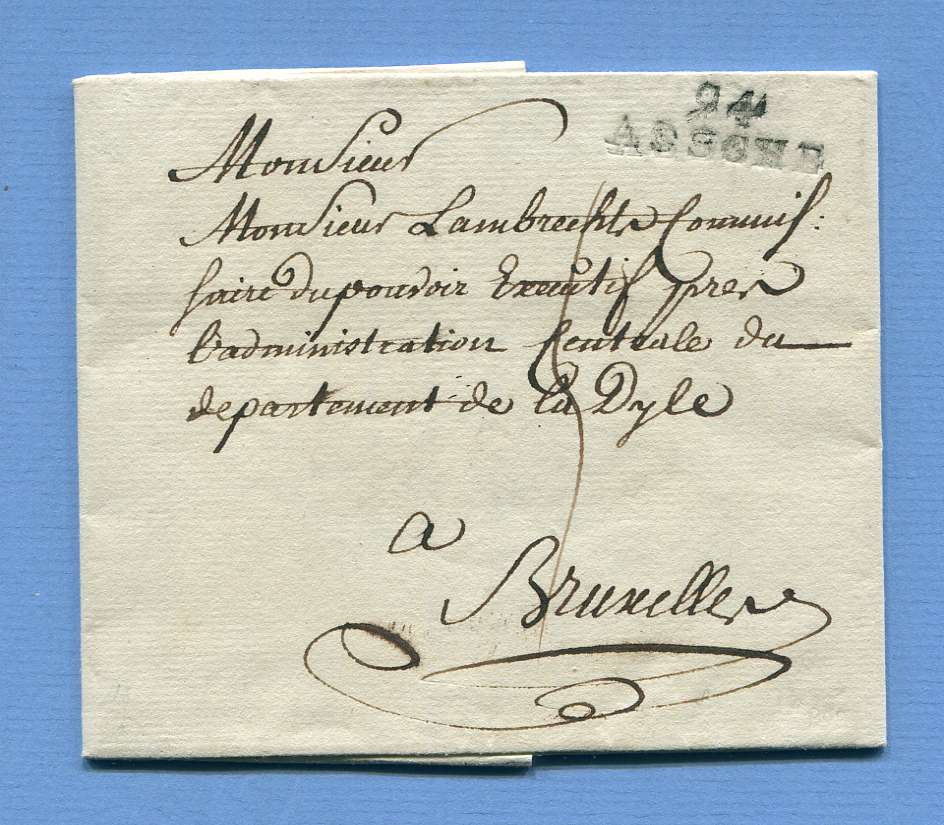 94
ASSCHE
Monsieur
Monsieur Lambrechts Commis:
saire du pouvoir Executif pres
l'administration Centrale du
departement de la Dyle
a
Bruxelles